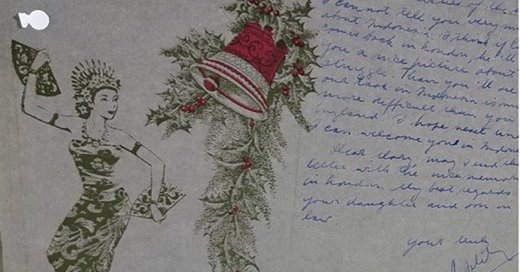 can not tell you very
about Indonesia, I think if
comes back in london, he'll
you a nice picture about
struggle. Than you'll see
our task in Indonesia is
more difficult than you
england. I hope next
I can welcome you in
Dear Mary may I end this
letter with the nice
in london. My best regards
your daughter and son in
law.
yours truly